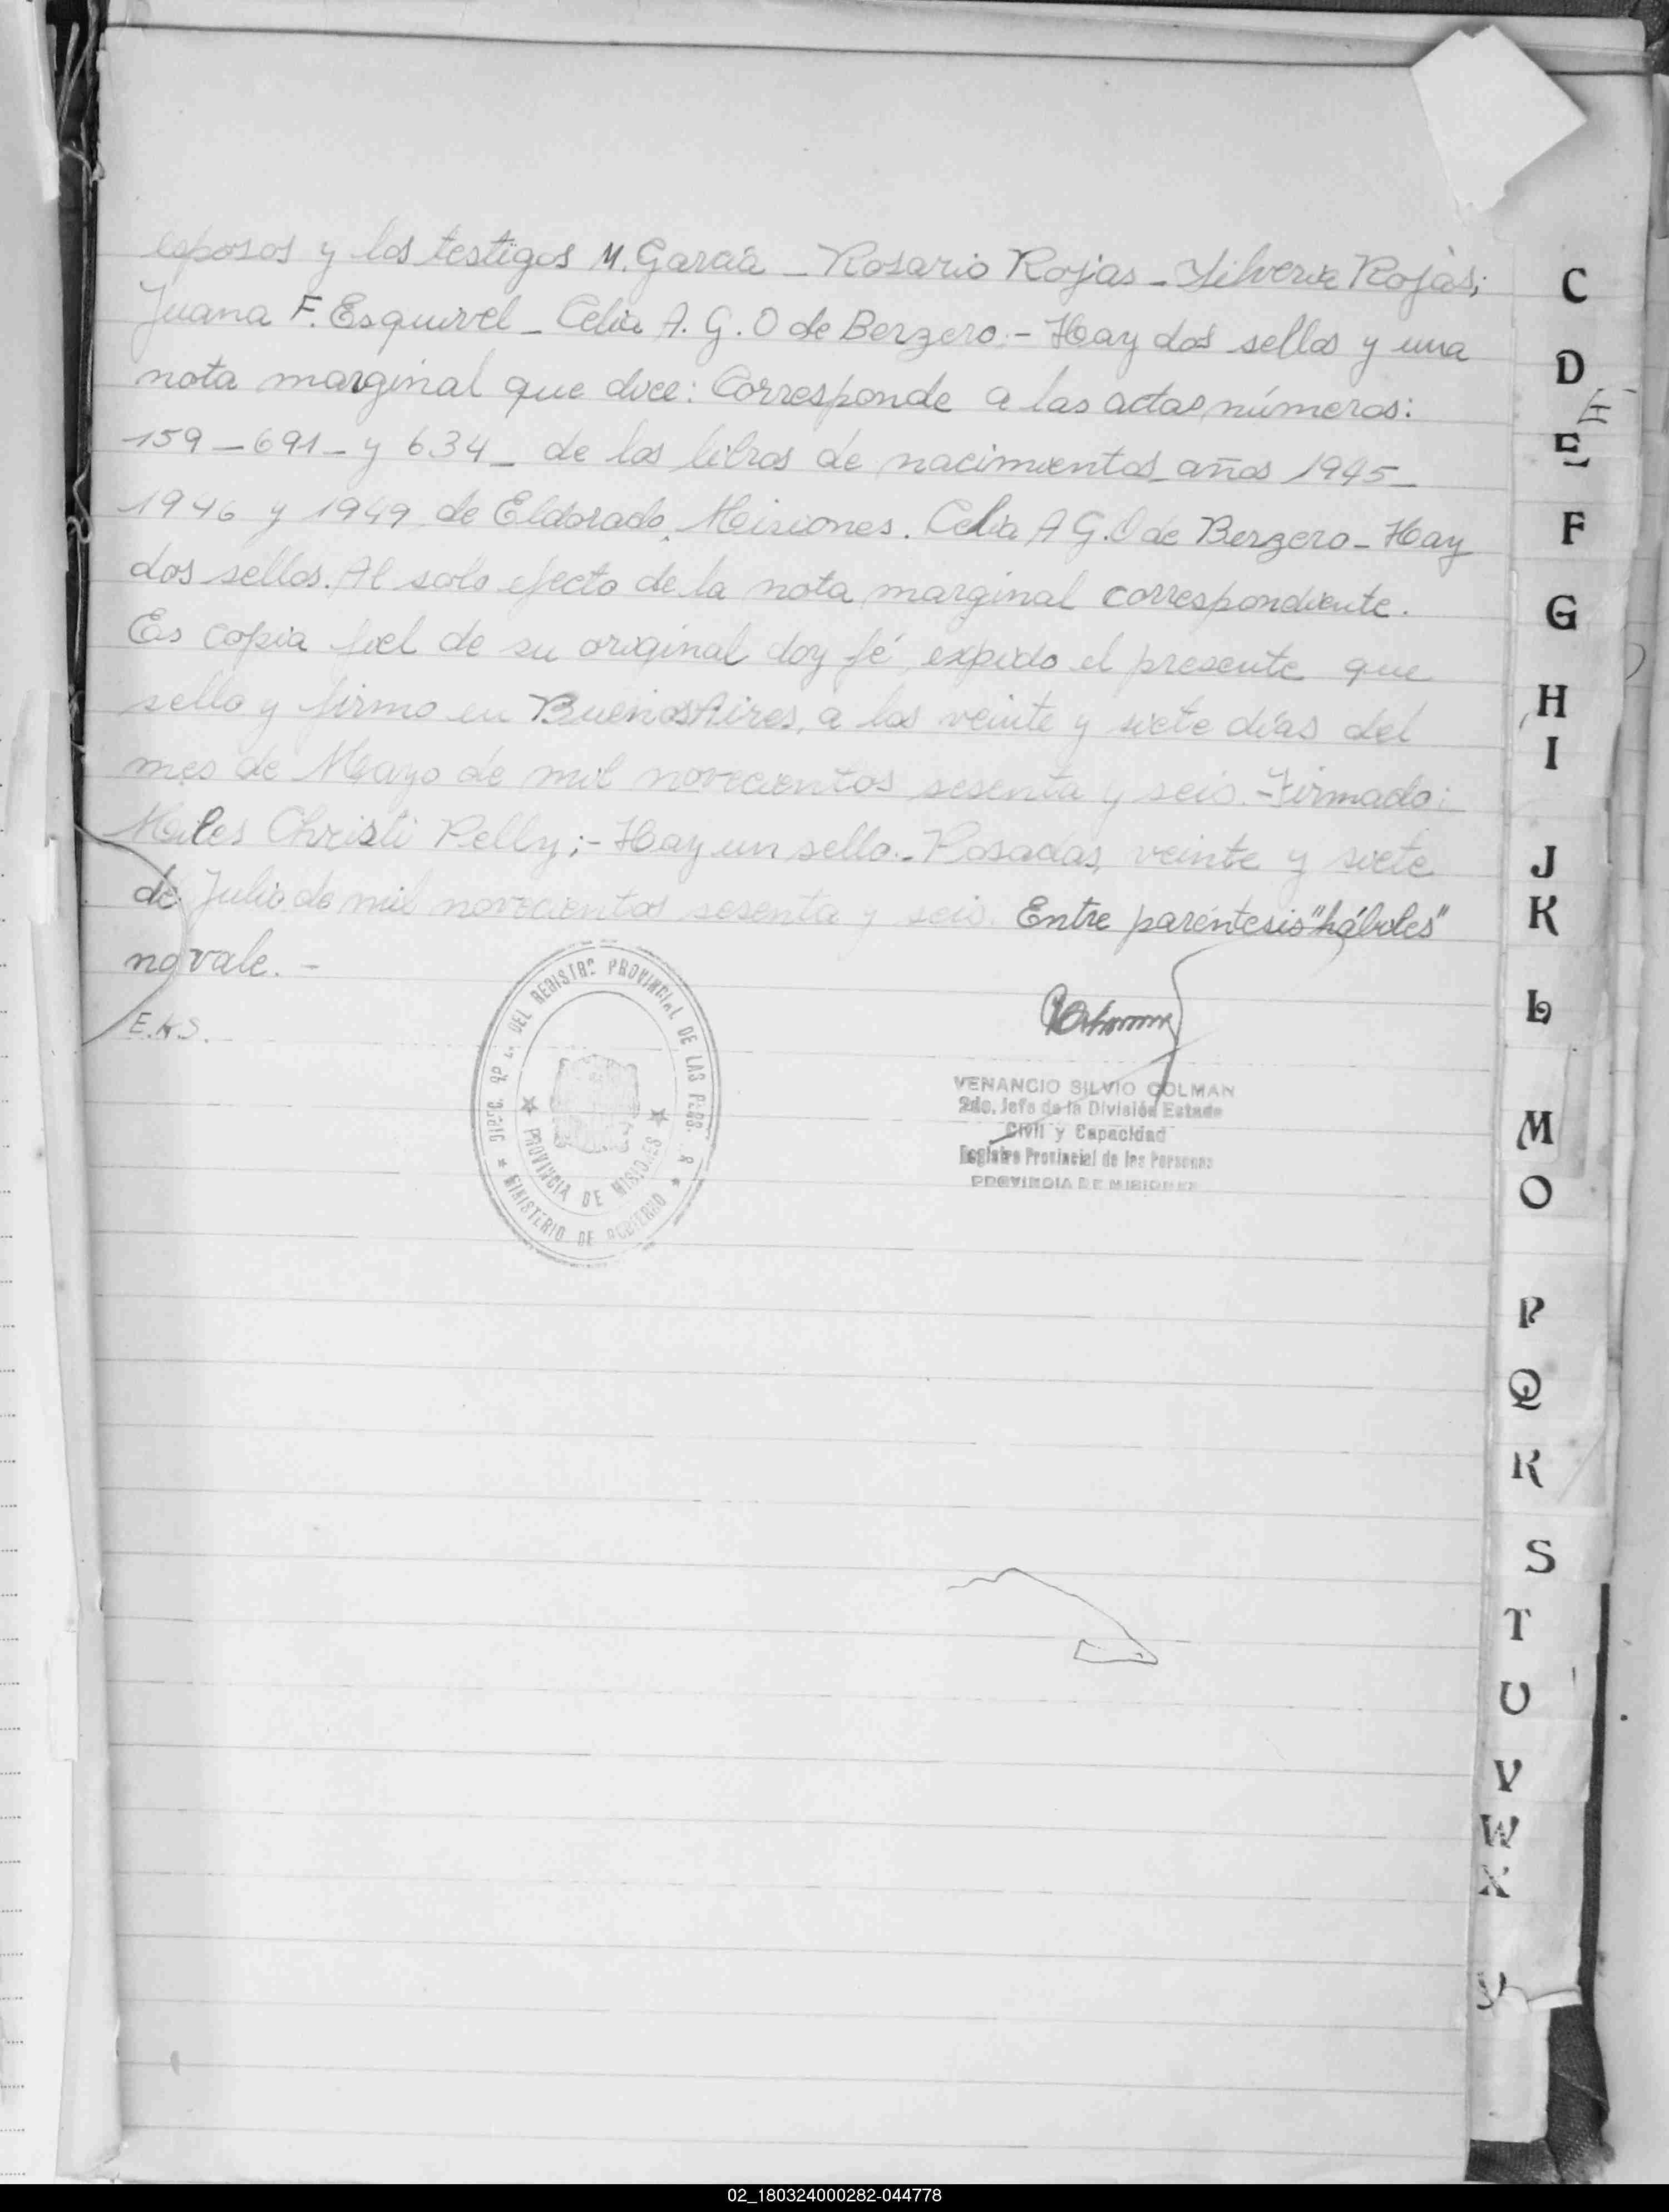 esposos y los testigos M. García _ Rosario Rojas - Silveria Rojas;
Juana F. Esquivel _ Celia A. G. O de Berzero.- Hay dos sellos y una
nota marginal que dice: Corresponde a las actas números:
159 _ 691 _ y 634 _ de los libros de nacimientos años 1945 _
1946 y 1949 de Eldorado, Misiones. Celia A G. O de Berzero - Hay
dos sellos. Al solo efecto de la nota marginal correspondiente.
Es copia fiel de su original doy fé, expido el presente que
sello y firmo en Buenos Aires, a los veinte y siete días del
mes de Mayo de mil novecientos sesenta y seis.- Firmado:
Miles Christi Pelly;- Hay un sello.- Posadas, veinte y siete
de Julio de mil novecientos sesenta y seis. Entre paréntesis "hábiles"
no vale. -
E.K.S.
DEL REGISTRO PROVINCIAL DE LAS PERS.
PROVINCIA DE MISIONES
MINISTERIO DE GOBIERNO
VENANCIO SILVIO COLMAN
2do. Jefe de la División Estado
Civil y Capacidad
Registro Provincial de las Personas
PROVINCIA DE MISIONES
C
D
E
F
G
H
I
J
K
L
M
O
P
Q
R
S
T
U
V
W
X
Y
02_180324000282-044778